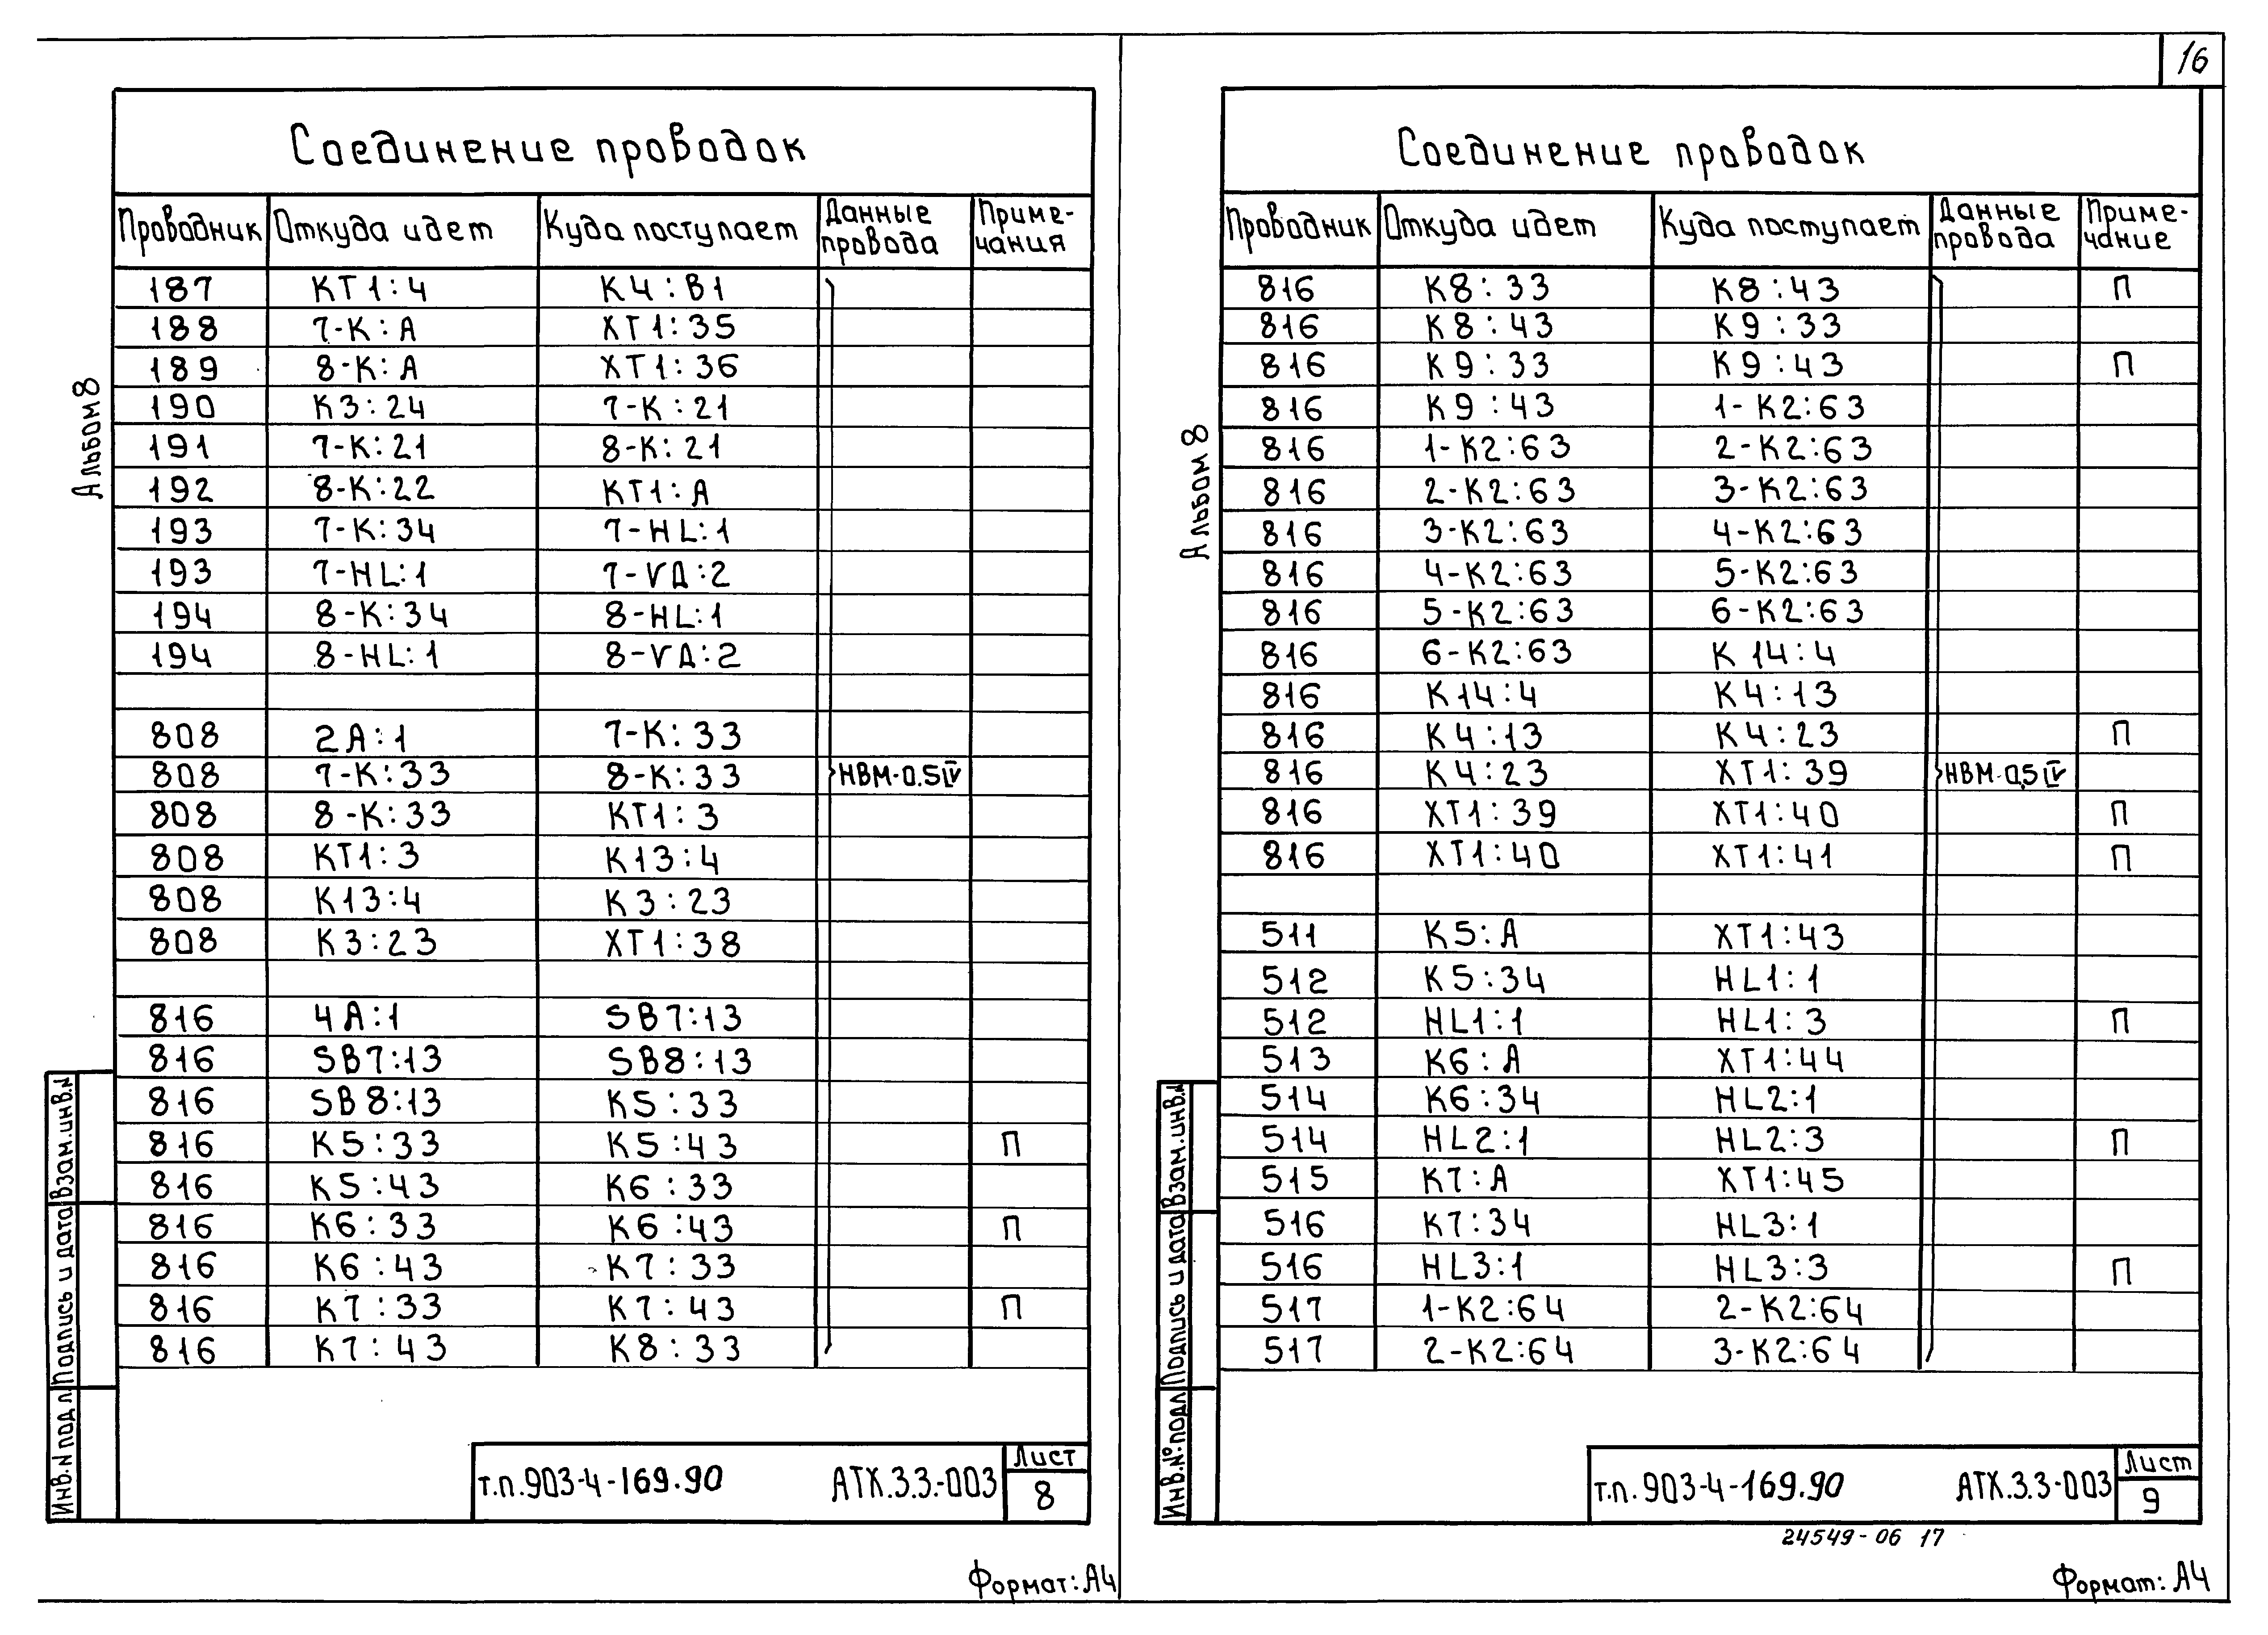 16
Соединение проводок
Проводник Откуда идет Куда поступает Данные провода Приме-чания
187 КТ1:4 К4:В1
188 7-К:А ХТ1:35
189 8-К:А ХТ1:36
190 К3:24 7-К:21
191 7-К:21 8-К:21
192 8-К:22 КТ1:А
193 7-К:34 7-HL:1
193 7-HL:1 7-VД:2
194 8-К:34 8-HL:1
194 8-HL:1 8-VД:2
808 2А:1 7-К:33
808 7-К:33 8-К:33 НВМ-0.5 IV
808 8-К:33 КТ1:3
808 КТ1:3 К13:4
808 К13:4 К3:23
808 К3:23 ХТ1:38
816 4А:1 SB7:13
816 SB7:13 SB8:13
816 SB8:13 К5:33
816 К5:33 К5:43 П
816 К5:43 К6:33
816 К6:33 К6:43 П
816 К6:43 К7:33
816 К7:33 К7:43 П
816 К7:43 К8:33
Альбом 8
Взам.инв.N
Подпись и дата
Инв.N подл
т.п.903-4-169.90 АТХ.3.3.-003
Лист
8
Формат: А4
Соединение проводок
Проводник Откуда идет Куда поступает Данные провода Приме-чание
816 К8:33 К8:43 П
816 К8:43 К9:33
816 К9:33 К9:43 П
816 К9:43 1-К2:63
816 1-К2:63 2-К2:63
816 2-К2:63 3-К2:63
816 3-К2:63 4-К2:63
816 4-К2:63 5-К2:63
816 5-К2:63 6-К2:63
816 6-К2:63 К14:4
816 К14:4 К4:13
816 К4:13 К4:23 П
816 К4:23 ХТ1:39 НВМ-0,5 IV
816 ХТ1:39 ХТ1:40 П
816 ХТ1:40 ХТ1:41 П
511 К5:А ХТ1:43
512 К5:34 HL1:1
512 HL1:1 HL1:3 П
513 К6:А ХТ1:44
514 К6:34 HL2:1
514 HL2:1 HL2:3 П
515 К7:А ХТ1:45
516 К7:34 HL3:1
516 HL3:1 HL3:3 П
517 1-К2:64 2-К2:64
517 2-К2:64 3-К2:64
Альбом 8
Взам.инв.N
Подпись и дата
Инв.№подл
т.п.903-4-169.90 АТХ.3.3-003
Лист
9
24549-06 17
Формат: А4